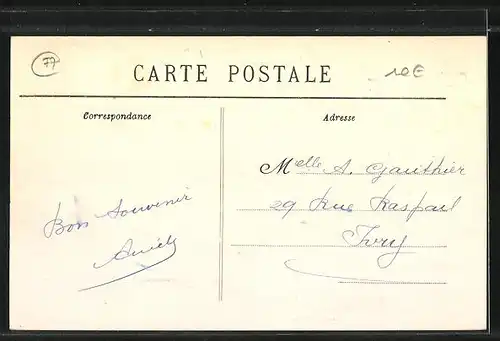 77
CARTE POSTALE
10€
Correspondance
Adresse
Melle A. Gauthier
29 Rue Raspail
Ivry
Bon Souvenir